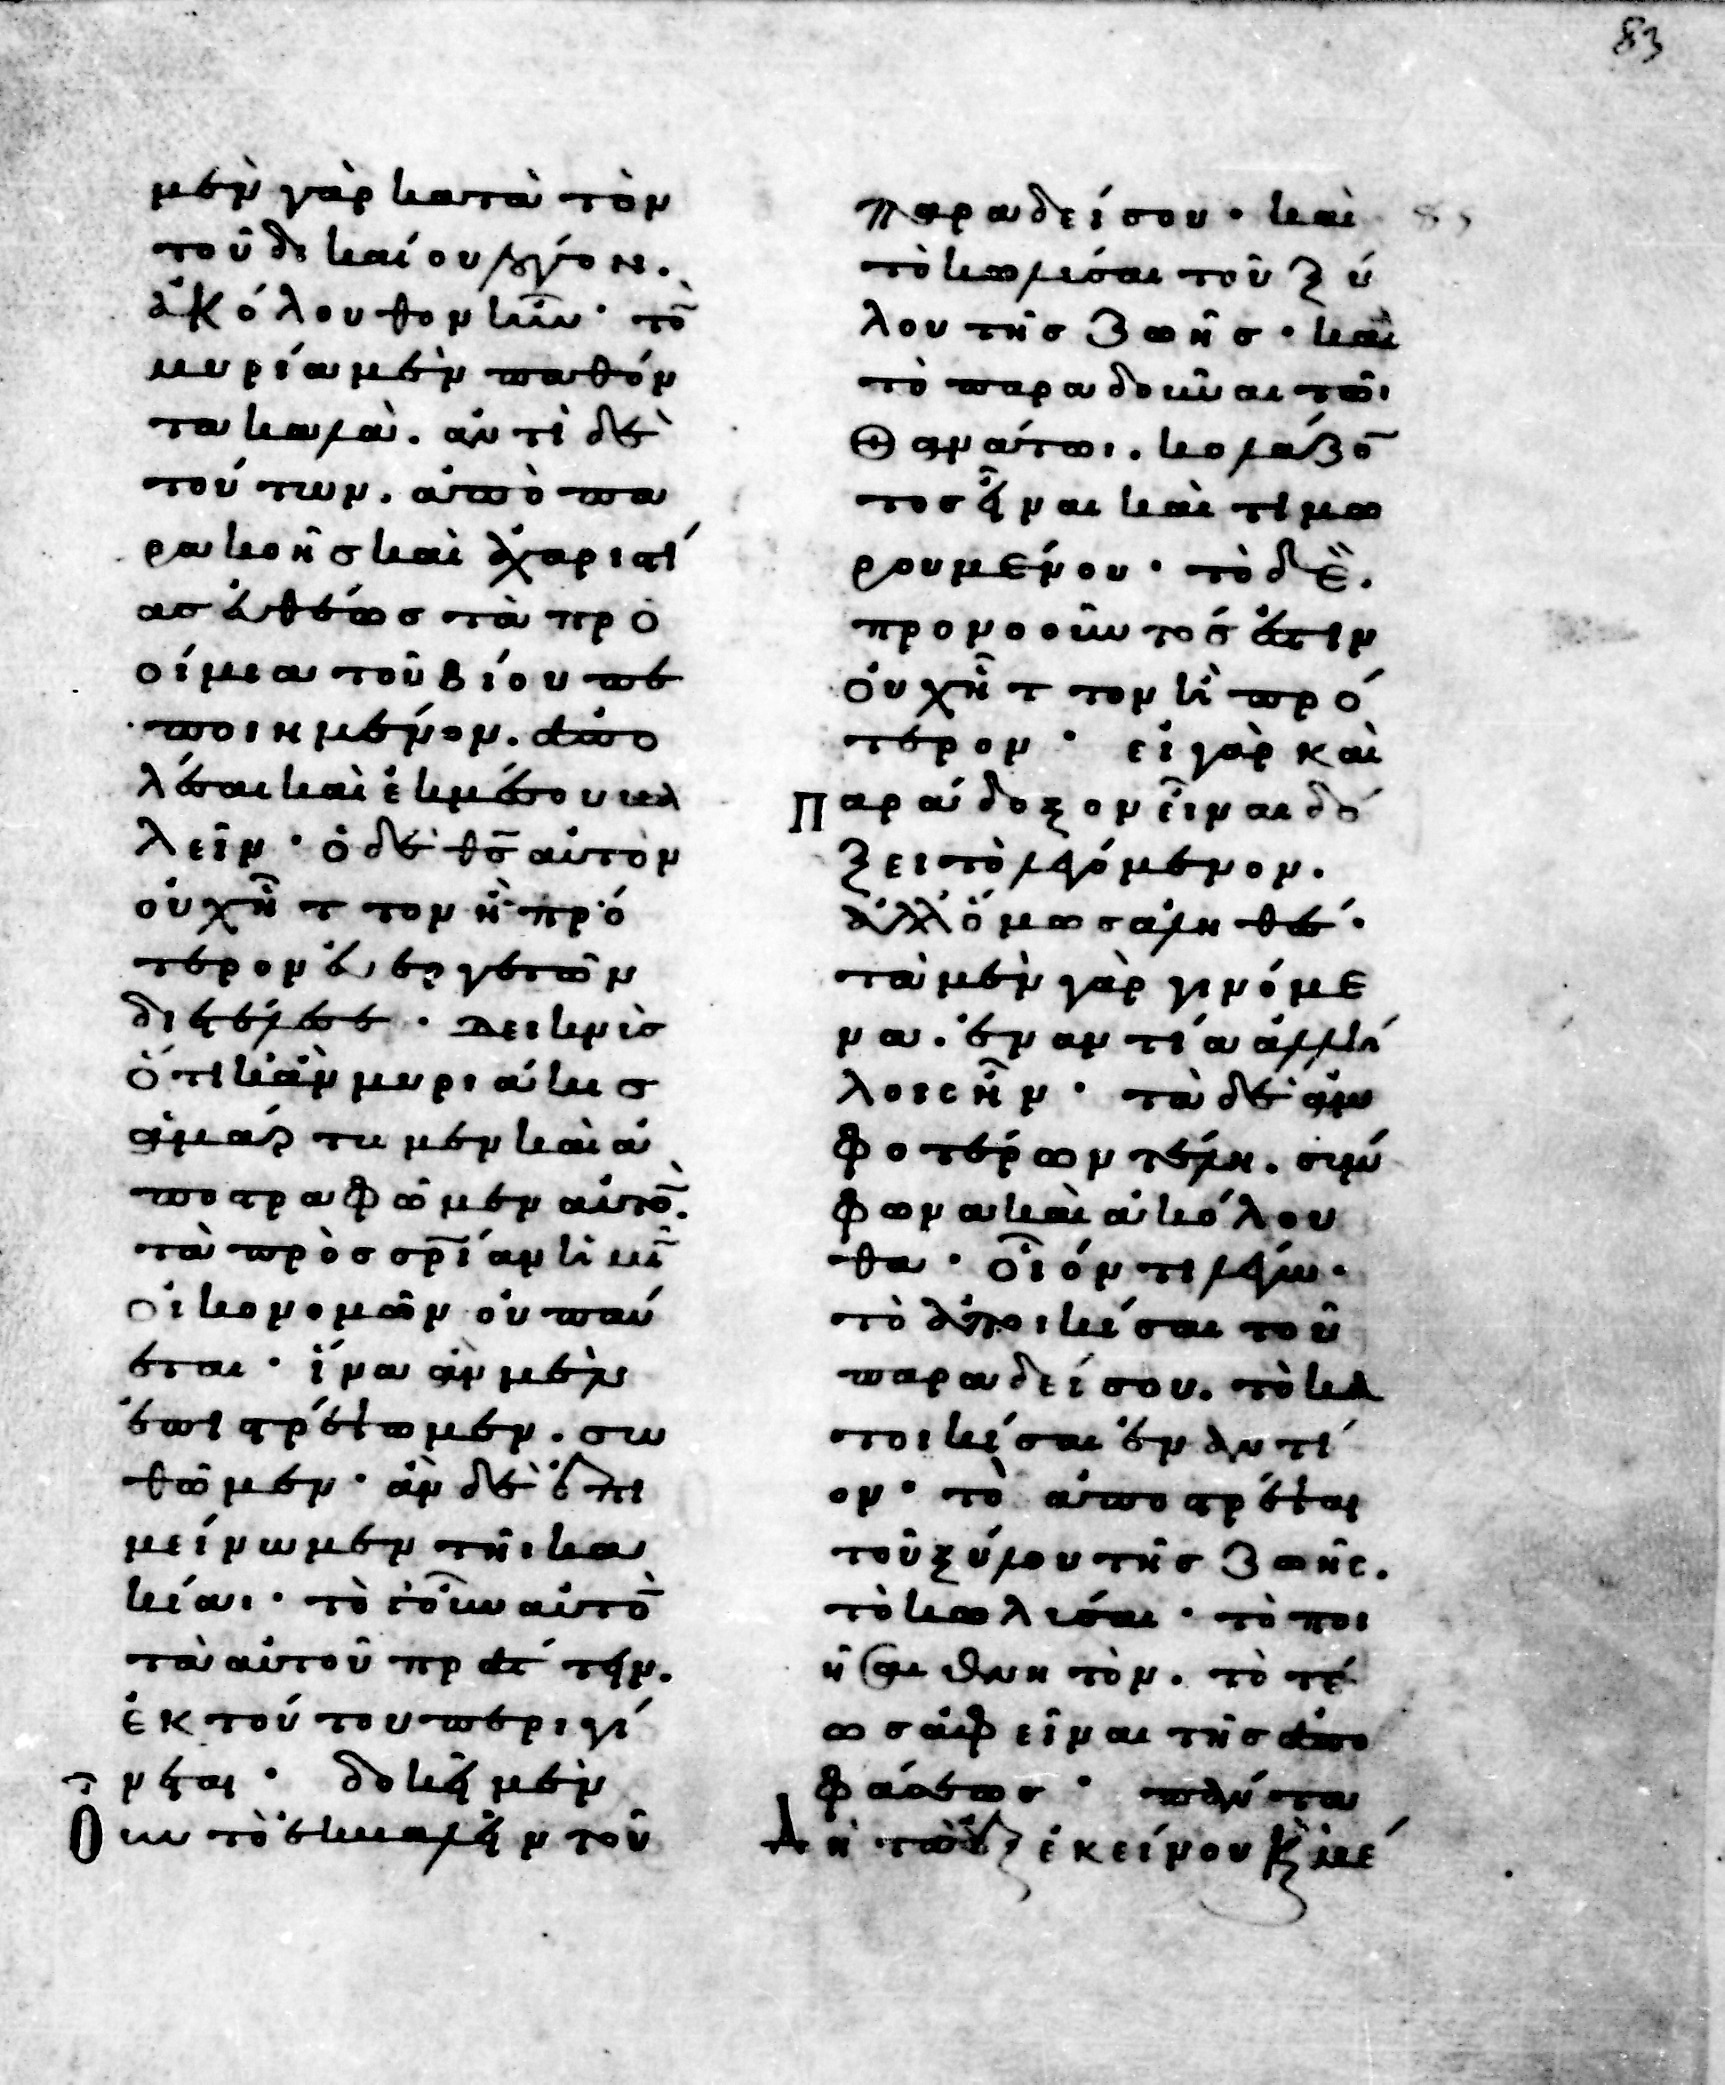 83
μὲν γὰρ κατὰ τὸν
τοῦ δικαίου λόγον.
ἀκόλουθον ἦν· τὸ̄
μυρία μὲν παθόν
τα καλὰ. ἀντὶ δὲ
τούτων. ἀπὸ πα
ρακοῆς καὶ ἀχαριστί
ας εὐθέως τὰ προ
οίμια τοῦ βίου πε
ποιημένον. ἀπο
λέσαι καὶ ἐκμέσου βα
λεῖν· ὁ δὲ θς̄ αὐτὸν
οὐχ ἧττον ἢ πρό
τερον εὐεργετῶν
διετέλεσε· δεικνὺς
ὅτι κἂν μυριάκις
ἁμάρτωμεν καὶ ἀ
ποστραφῶμεν αὐτὸ̄.
τὰ πρὸς σρ̄ίαν ἡμῖ̄
οἰκονομῶν οὐ παύ
εται· ἵνα ἂν μὲν
ἐπιστρέψωμεν. σω
θῶμεν· ἂν δὲ ἐπι
μείνωμεν τῆι κα
κίαι· τὸ γοῦν αὐτὸ̄
τὰ αὐτοῦ πράττειν.
ἐκ τούτου περιγί
νεται· δοκεῖ μὲν
οὖν τὸ ἐκβαλεῖν τοῦ
παραδείσου· καὶ
τὸ κωλύσαι τοῦ ξύ
λου τῆς ζωῆς· καὶ
τὸ παραδοῦναι τῶι
θανάτωι. κολάζο̄
τος εἶναι καὶ τιμω
ρουμένου· τὸ δὲ.
προνοοῦντός ἐστιν
οὐχ ἧττον ἢ πρό
τερον· εἰ γὰρ καὶ
παράδοξον εἶναι δό
ξει τὸ λεγόμενον.
ἀλλ' ὅμως ἀληθές·
τὰ μὲν γὰρ γινόμε
να. ἐναντία ἀλλή
λοις ἦν· τὰ δὲ ἀμ
φοτέρων τέλη. σύμ
φωνα καὶ ἀκόλου
θα· οἷόν τι λέγω·
τὸ ἀποικίσαι τοῦ
παραδείσου. τὸ κα
τοικίσαι ἐναντί
ον· τὸ ἀποστρέψαι
τοῦ ξύλου τῆς ζωῆς.
τὸ κωλύσαι· τὸ ποι
ῆσαι θνητὸν. τὸ τέ
ως ἀφεῖναι τῆς ἀπο
φάσεως· πάντα
δὴ ταῦτ' ἐκείνου κἀμέ